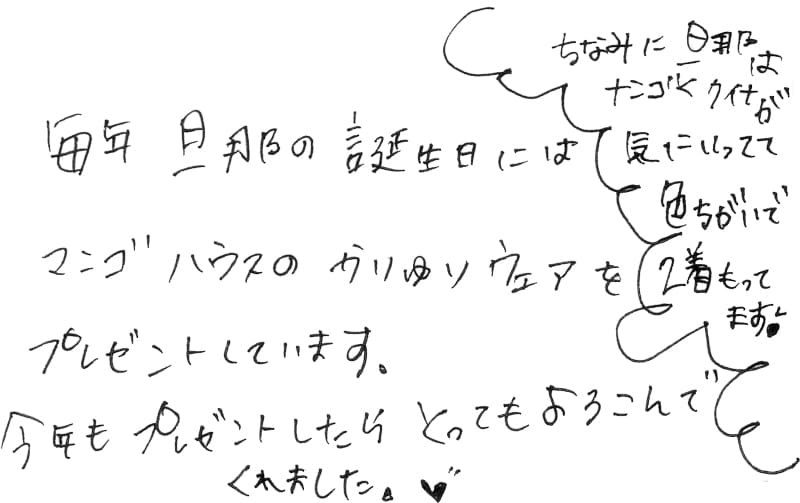 毎年 旦那の 誕生日には
マンゴハウスの かりゆりウェアを
プレゼントしています。
今年も プレゼントしたら とってもよろこんで
くれました。♥
ちなみに 旦那は
ナンゴドクイナが
気にいってて
色ちがいで
2着もって
ます♥